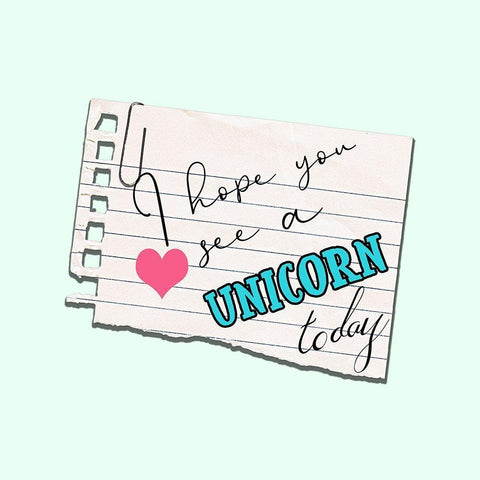 I hope you
see a
UNICORN
today